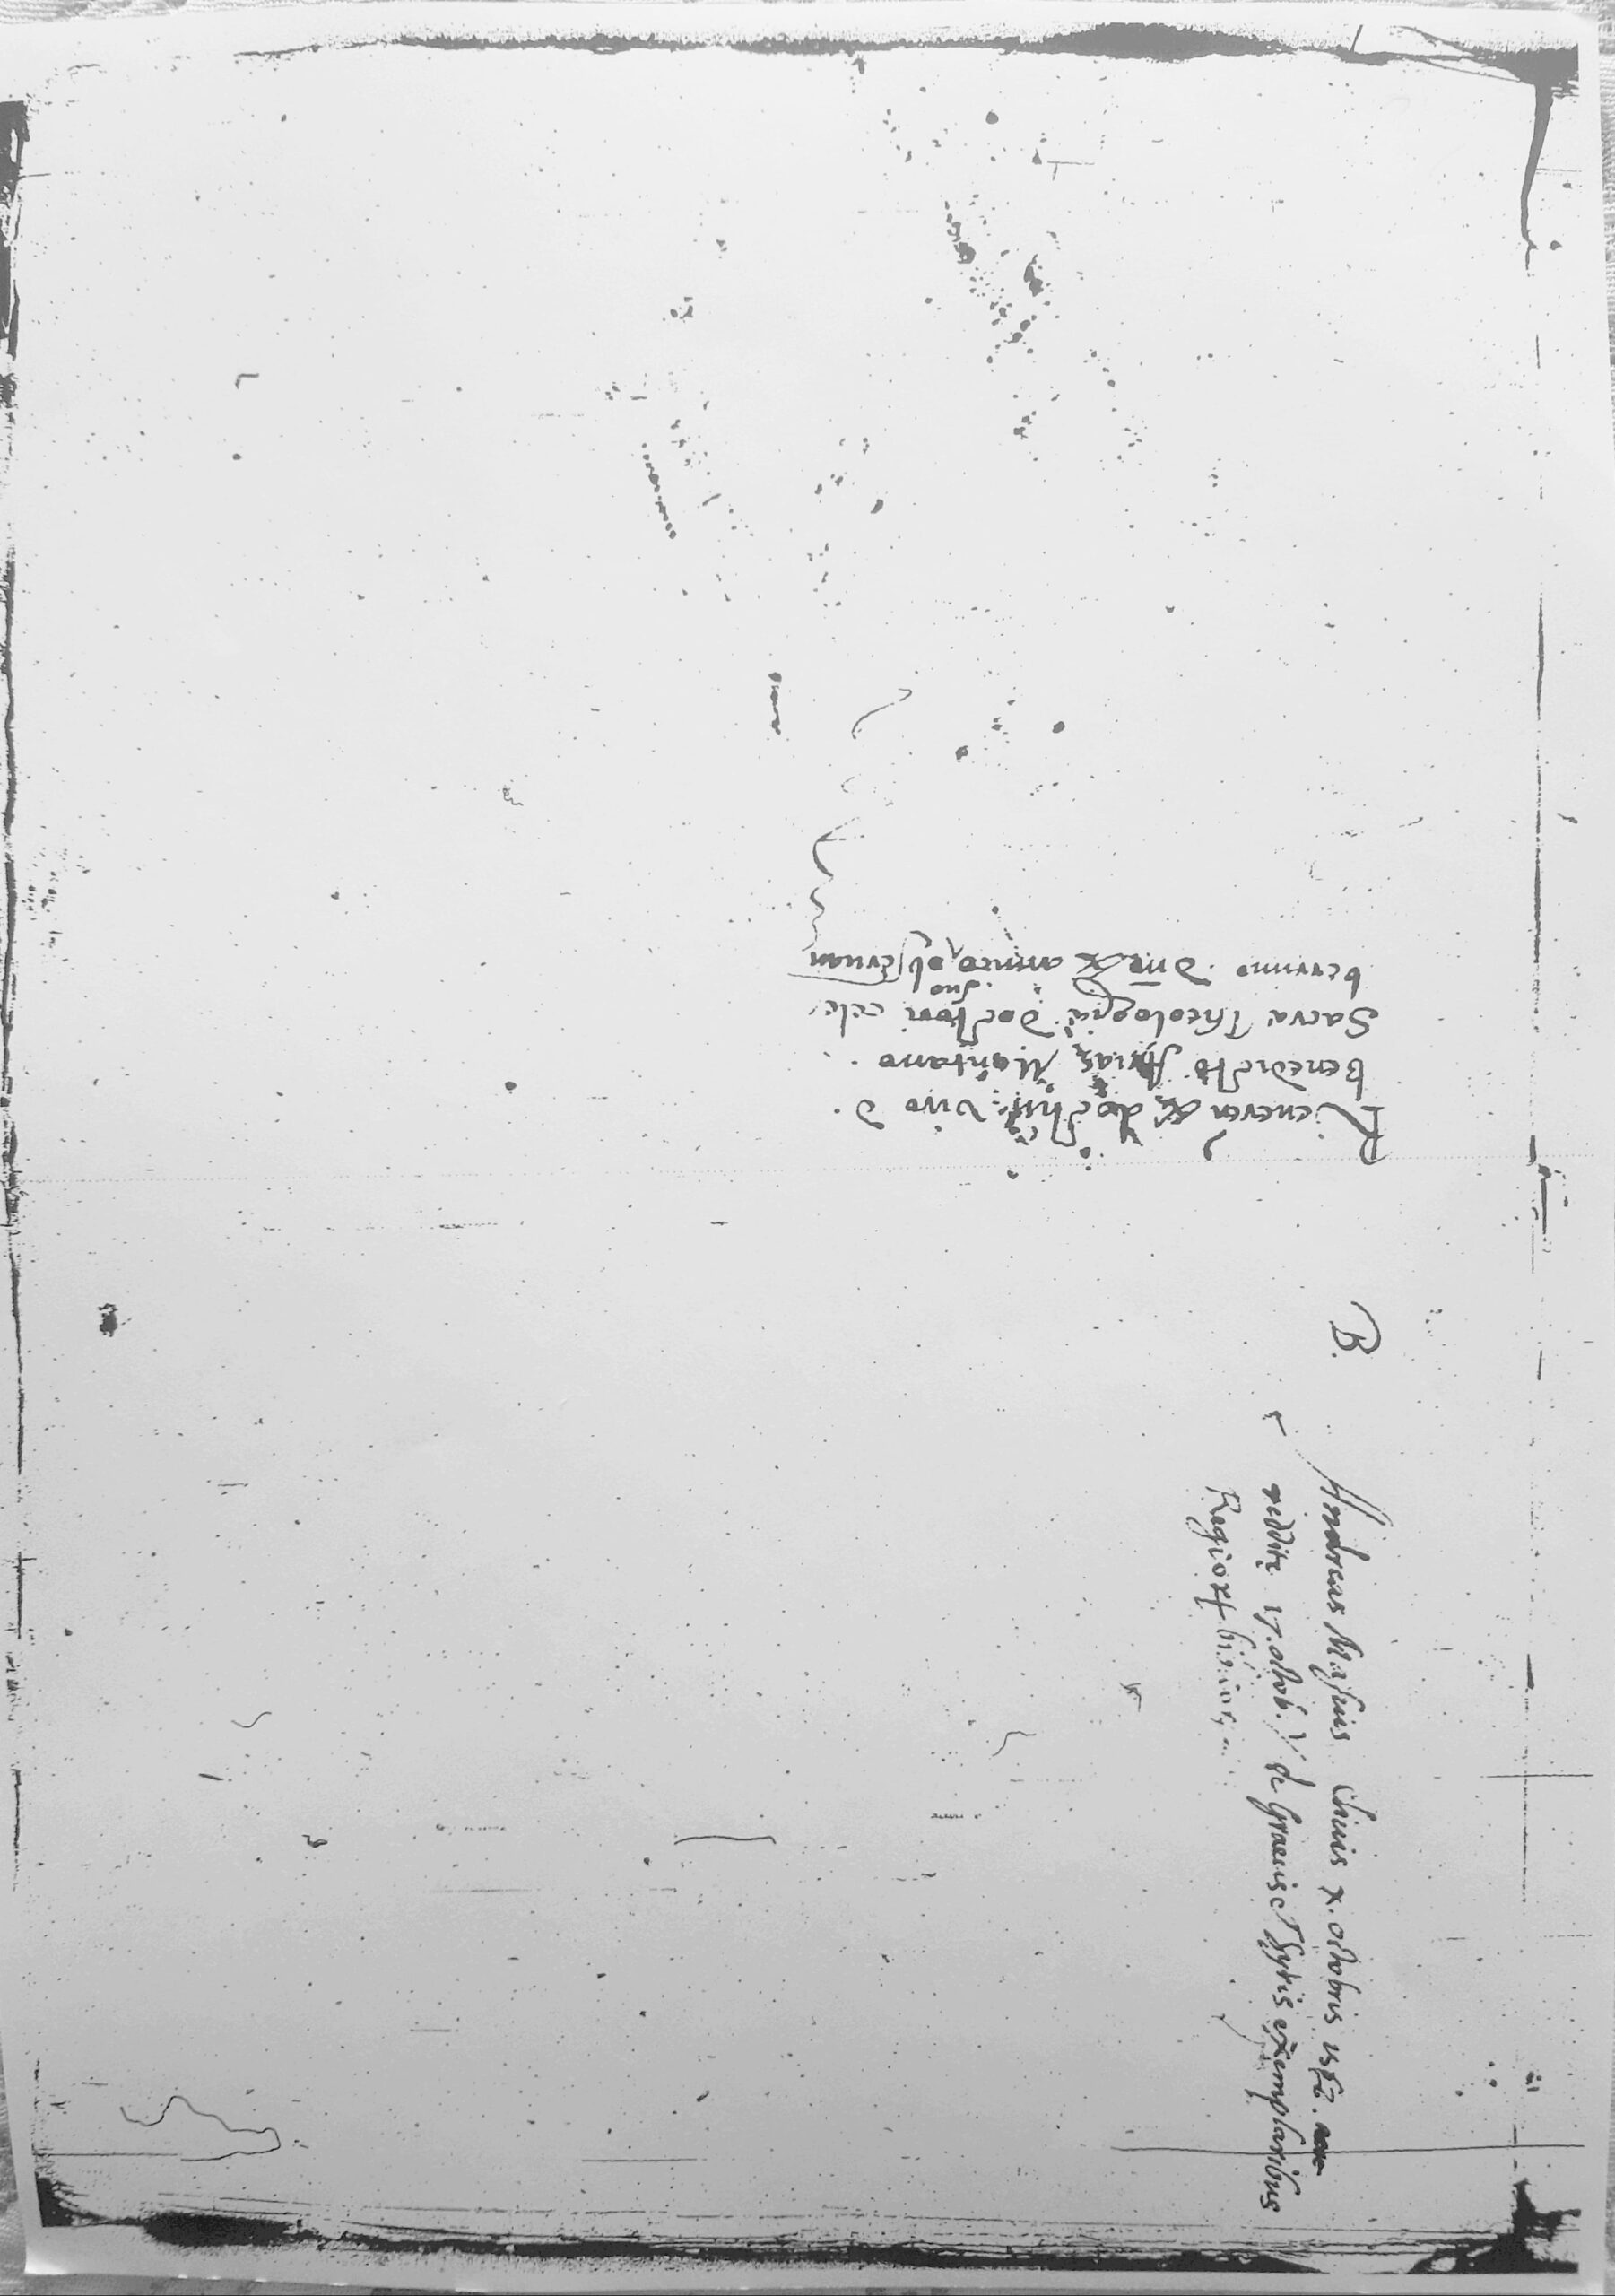 Reueren. & doctiss. viro D.
Benedicto Ariae Montano
Sacrae Theologiae Doctori cele
berrimo Dno & amico suo obseruan
B.
Andreas Masius Cliuis x. octobris
reddite 17. octob. de Graecis et Syris exemplaribus
Regiorum